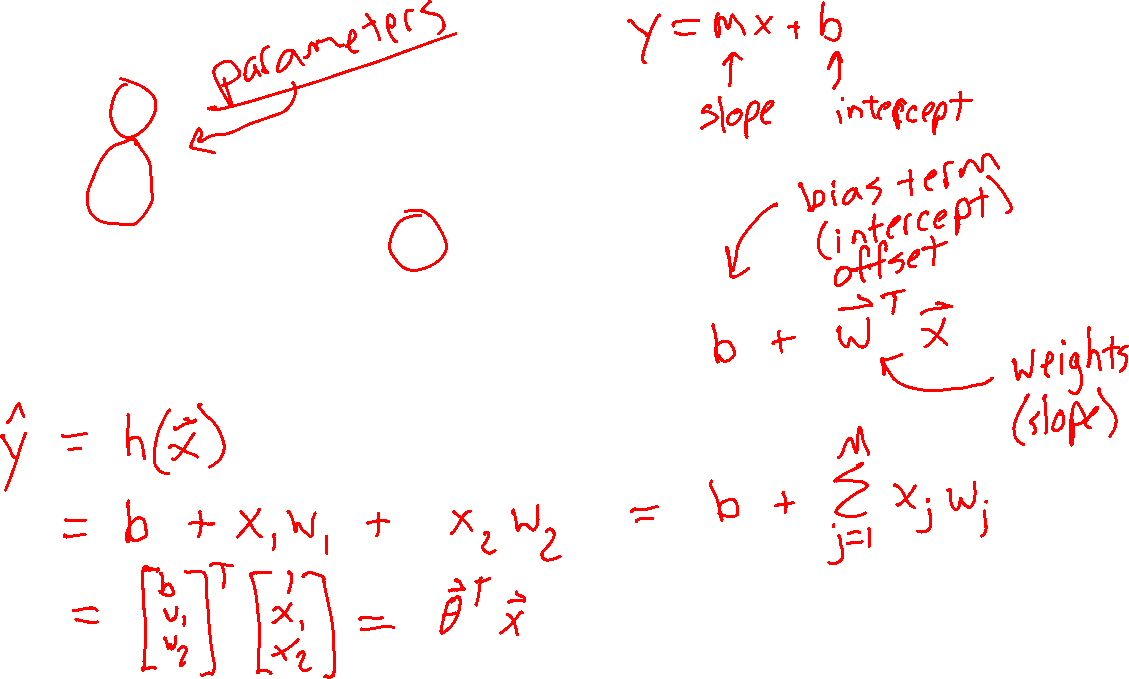 parameters
y = mx + b
slope intercept
bias term
(intercept)
offset
b + w⃗ᵀ x⃗
weights
(slope)
ŷ = h(x⃗)
= b + x₁w₁ + x₂w₂ = b + ∑ⱼ₌₁ᴹ xⱼwⱼ
= [b w₁ w₂]ᵀ [1 x₁ x₂] = θ⃗ᵀ x⃗